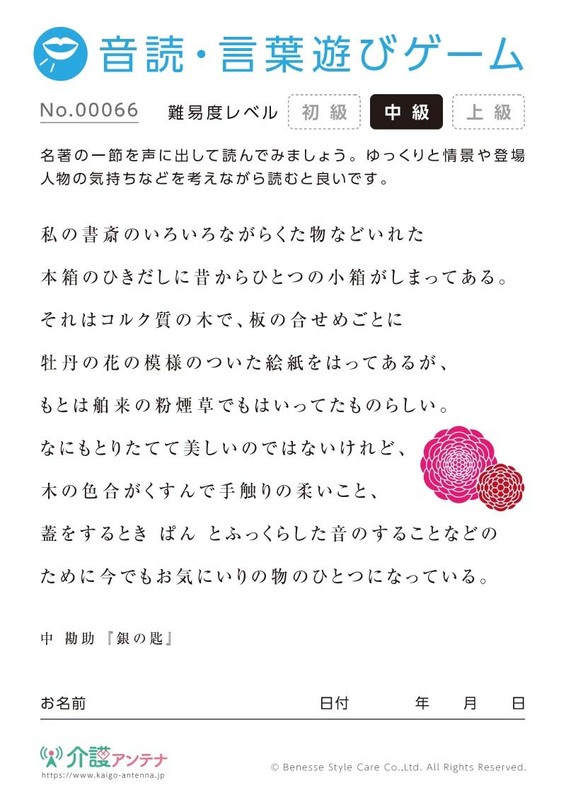 音読・言葉遊びゲーム
No.00066 難易度レベル 初級 中級 上級
名著の一節を声に出して読んでみましょう。ゆっくりと情景や登場
人物の気持ちなどを考えながら読むと良いです。
私の書斎のいろいろながらくた物などいれた
本箱のひきだしに昔からひとつの小箱がしまってある。
それはコルク質の木で、板の合せめごとに
牡丹の花の模様のついた絵紙をはってあるが、
もとは舶来の粉煙草でもはいってたものらしい。
なにもとりたてて美しいのではないけれど、
木の色合がくすんで手触りの柔いこと、
蓋をするとき ぱん とふっくらした音のすることなどの
ために今でもお気にいりの物のひとつになっている。
中 勘助『銀の匙』
お名前 日付 年 月 日
介護アンテナ
https://www.kaigo-antenna.jp/
© Benesse Style Care Co.,Ltd. All Rights Reserved.